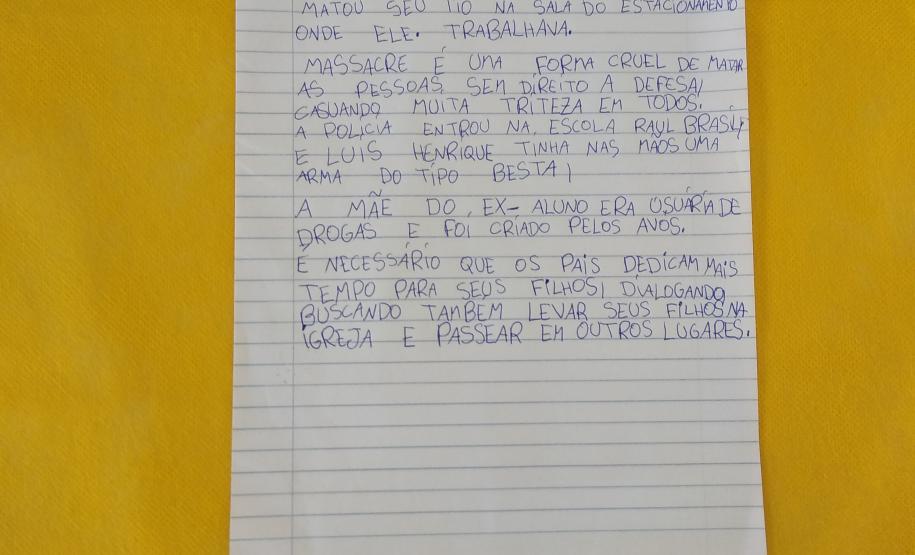 MATOU SEU TIO NA SALA DO ESTACIONAMENTO
ONDE ELE. TRABALHAVA.
MASSACRE É UMA FORMA CRUEL DE MATAR
AS PESSOAS SEM DIREITO A DEFESA,
CASUANDO MUITA TRITEZA EM TODOS.
A POLICIA ENTROU NA, ESCOLA RAUL BRASIL,
E LUIS HENRIQUE TINHA NAS MÃOS UMA
ARMA DO TIPO BESTA,
A MÃE DO, EX-ALUNO ERA USUÁRIA DE
DROGAS E FOI CRIADO PELOS AVÓS.
É NECESSÁRIO QUE OS PAIS DEDICAM MAIS
TEMPO PARA SEUS FILHOS, DIALOGANDO
BUSCANDO TAMBEM LEVAR SEUS FILHOS NA
IGREJA E PASSEAR EM OUTROS LUGARES.